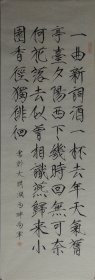 一曲新詞酒一杯去年天氣舊
亭臺夕陽西下幾時回無可奈
何花落去似曾相識燕歸來小
園香徑獨徘徊